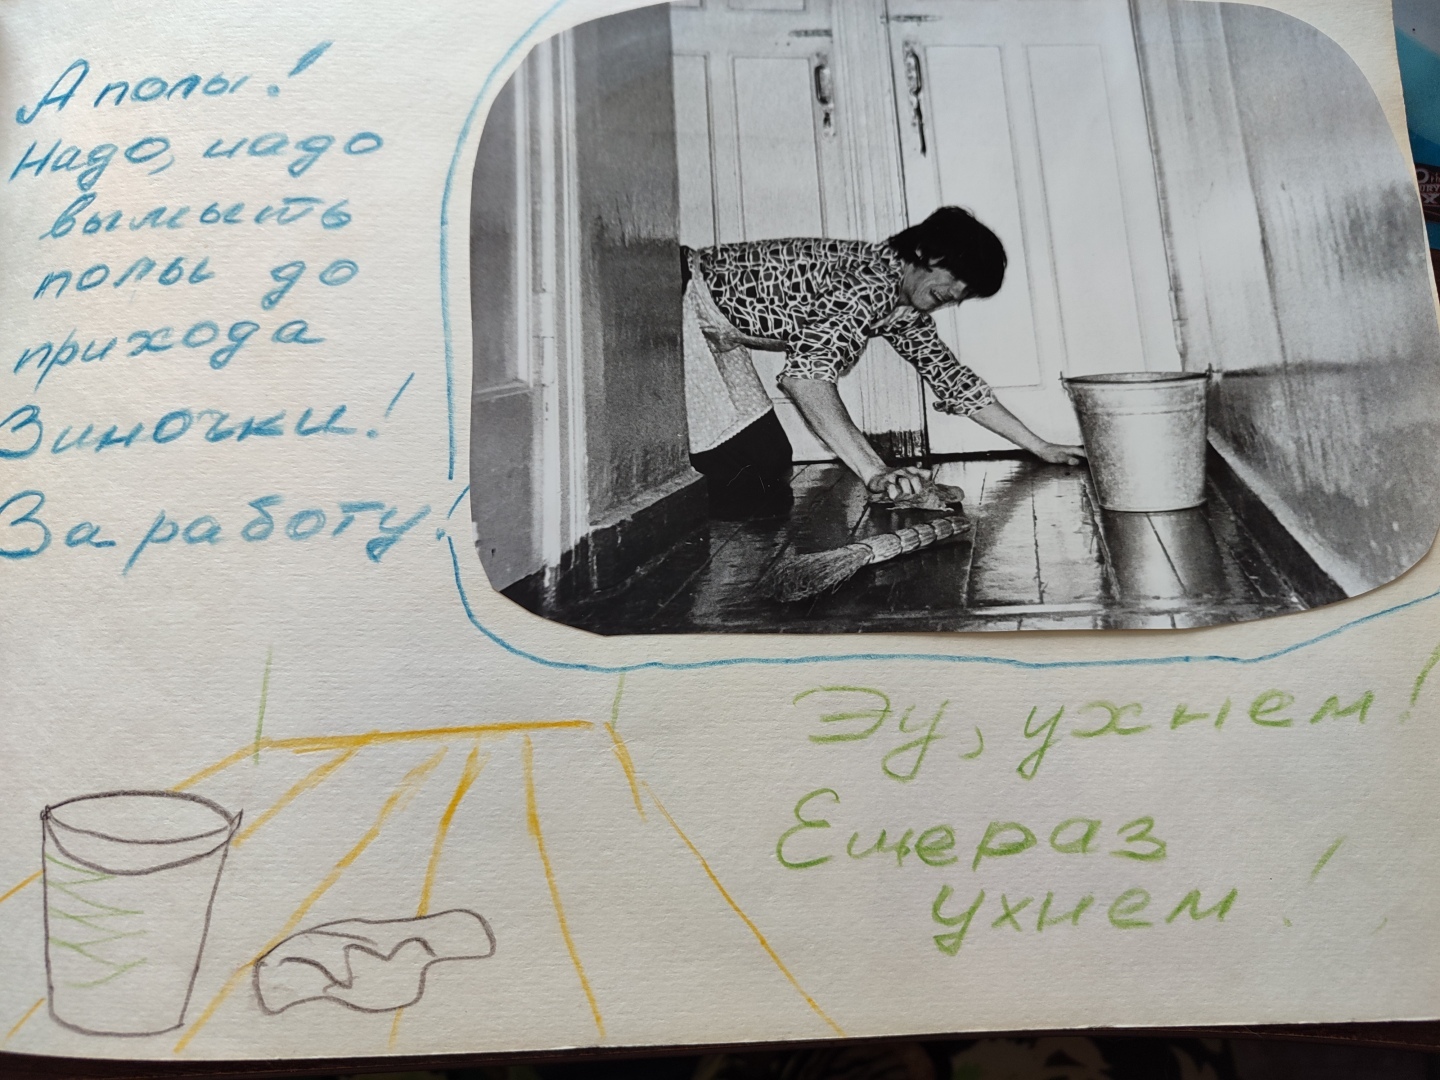 А полы!
Надо, надо
вымыть
полы до
прихода
Зиночки!
За работу!
Эу, ухнем!
Еще раз
ухнем!